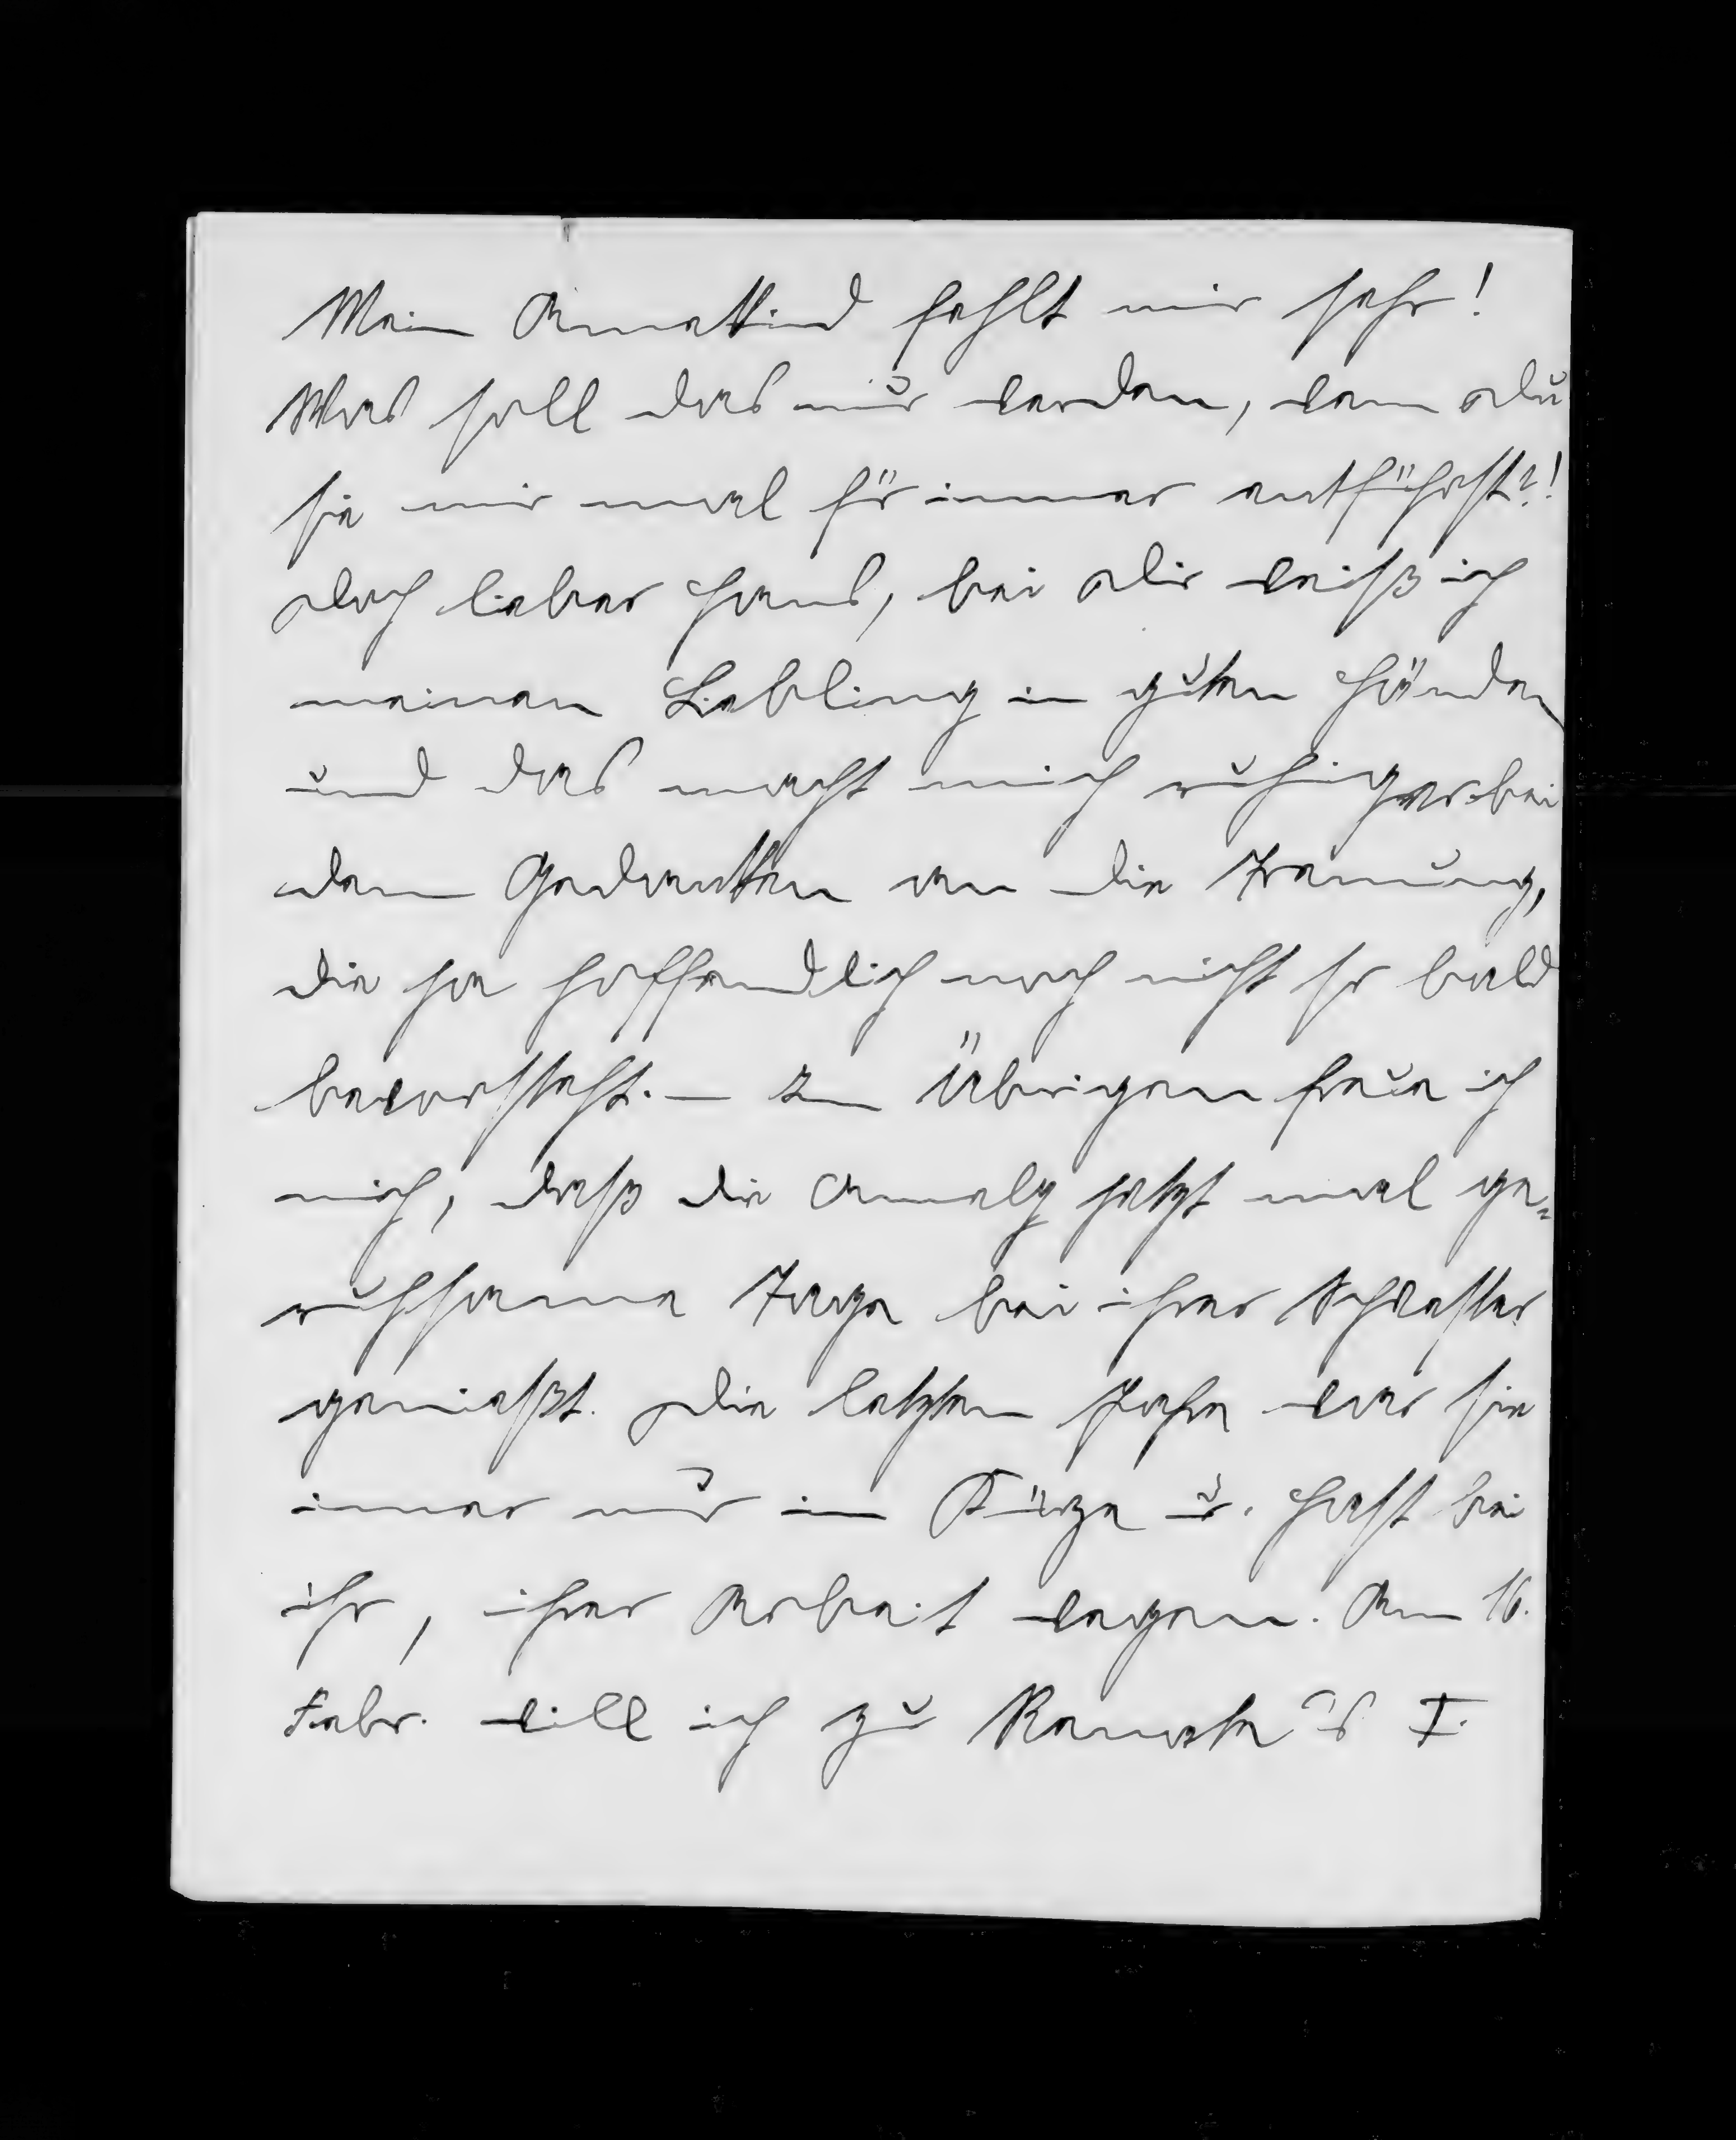 Mein Annekind fehlt mir sehr!
Was soll das nur werden, wenn Du
sie mir mal für immer entführst?!
Doch lieber Hans, bei Dir weiß ich
meinen Liebling in guten Händen
und das macht mich ruhiger bei
dem Gedanken an die Trennung,
die ja hoffendlich noch nicht so bald
bevorsteht. — Im Übrigen freue ich
mich, daß die Annely jetzt mal ge-
ruhsame Tage bei ihrer Schwester
genießt. Die letzten Jahre war sie
immer nur in Kürze u. Hast bei
ihr, ihrer Arbeit wegen. Am 16.
Febr. will ich zu Renate's I.